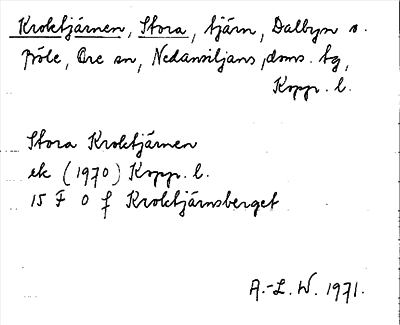 Kroktjärnen, Stora, tjärn, Dalbyn o.
Föle, Ore sn, Nedansiljans doms. tg,
Kopp. l.
Stora Kroktjärnen
ek (1970) Kopp. l.
15 F 0 f Kroktjärnsberget
A.-L. W. 1971.